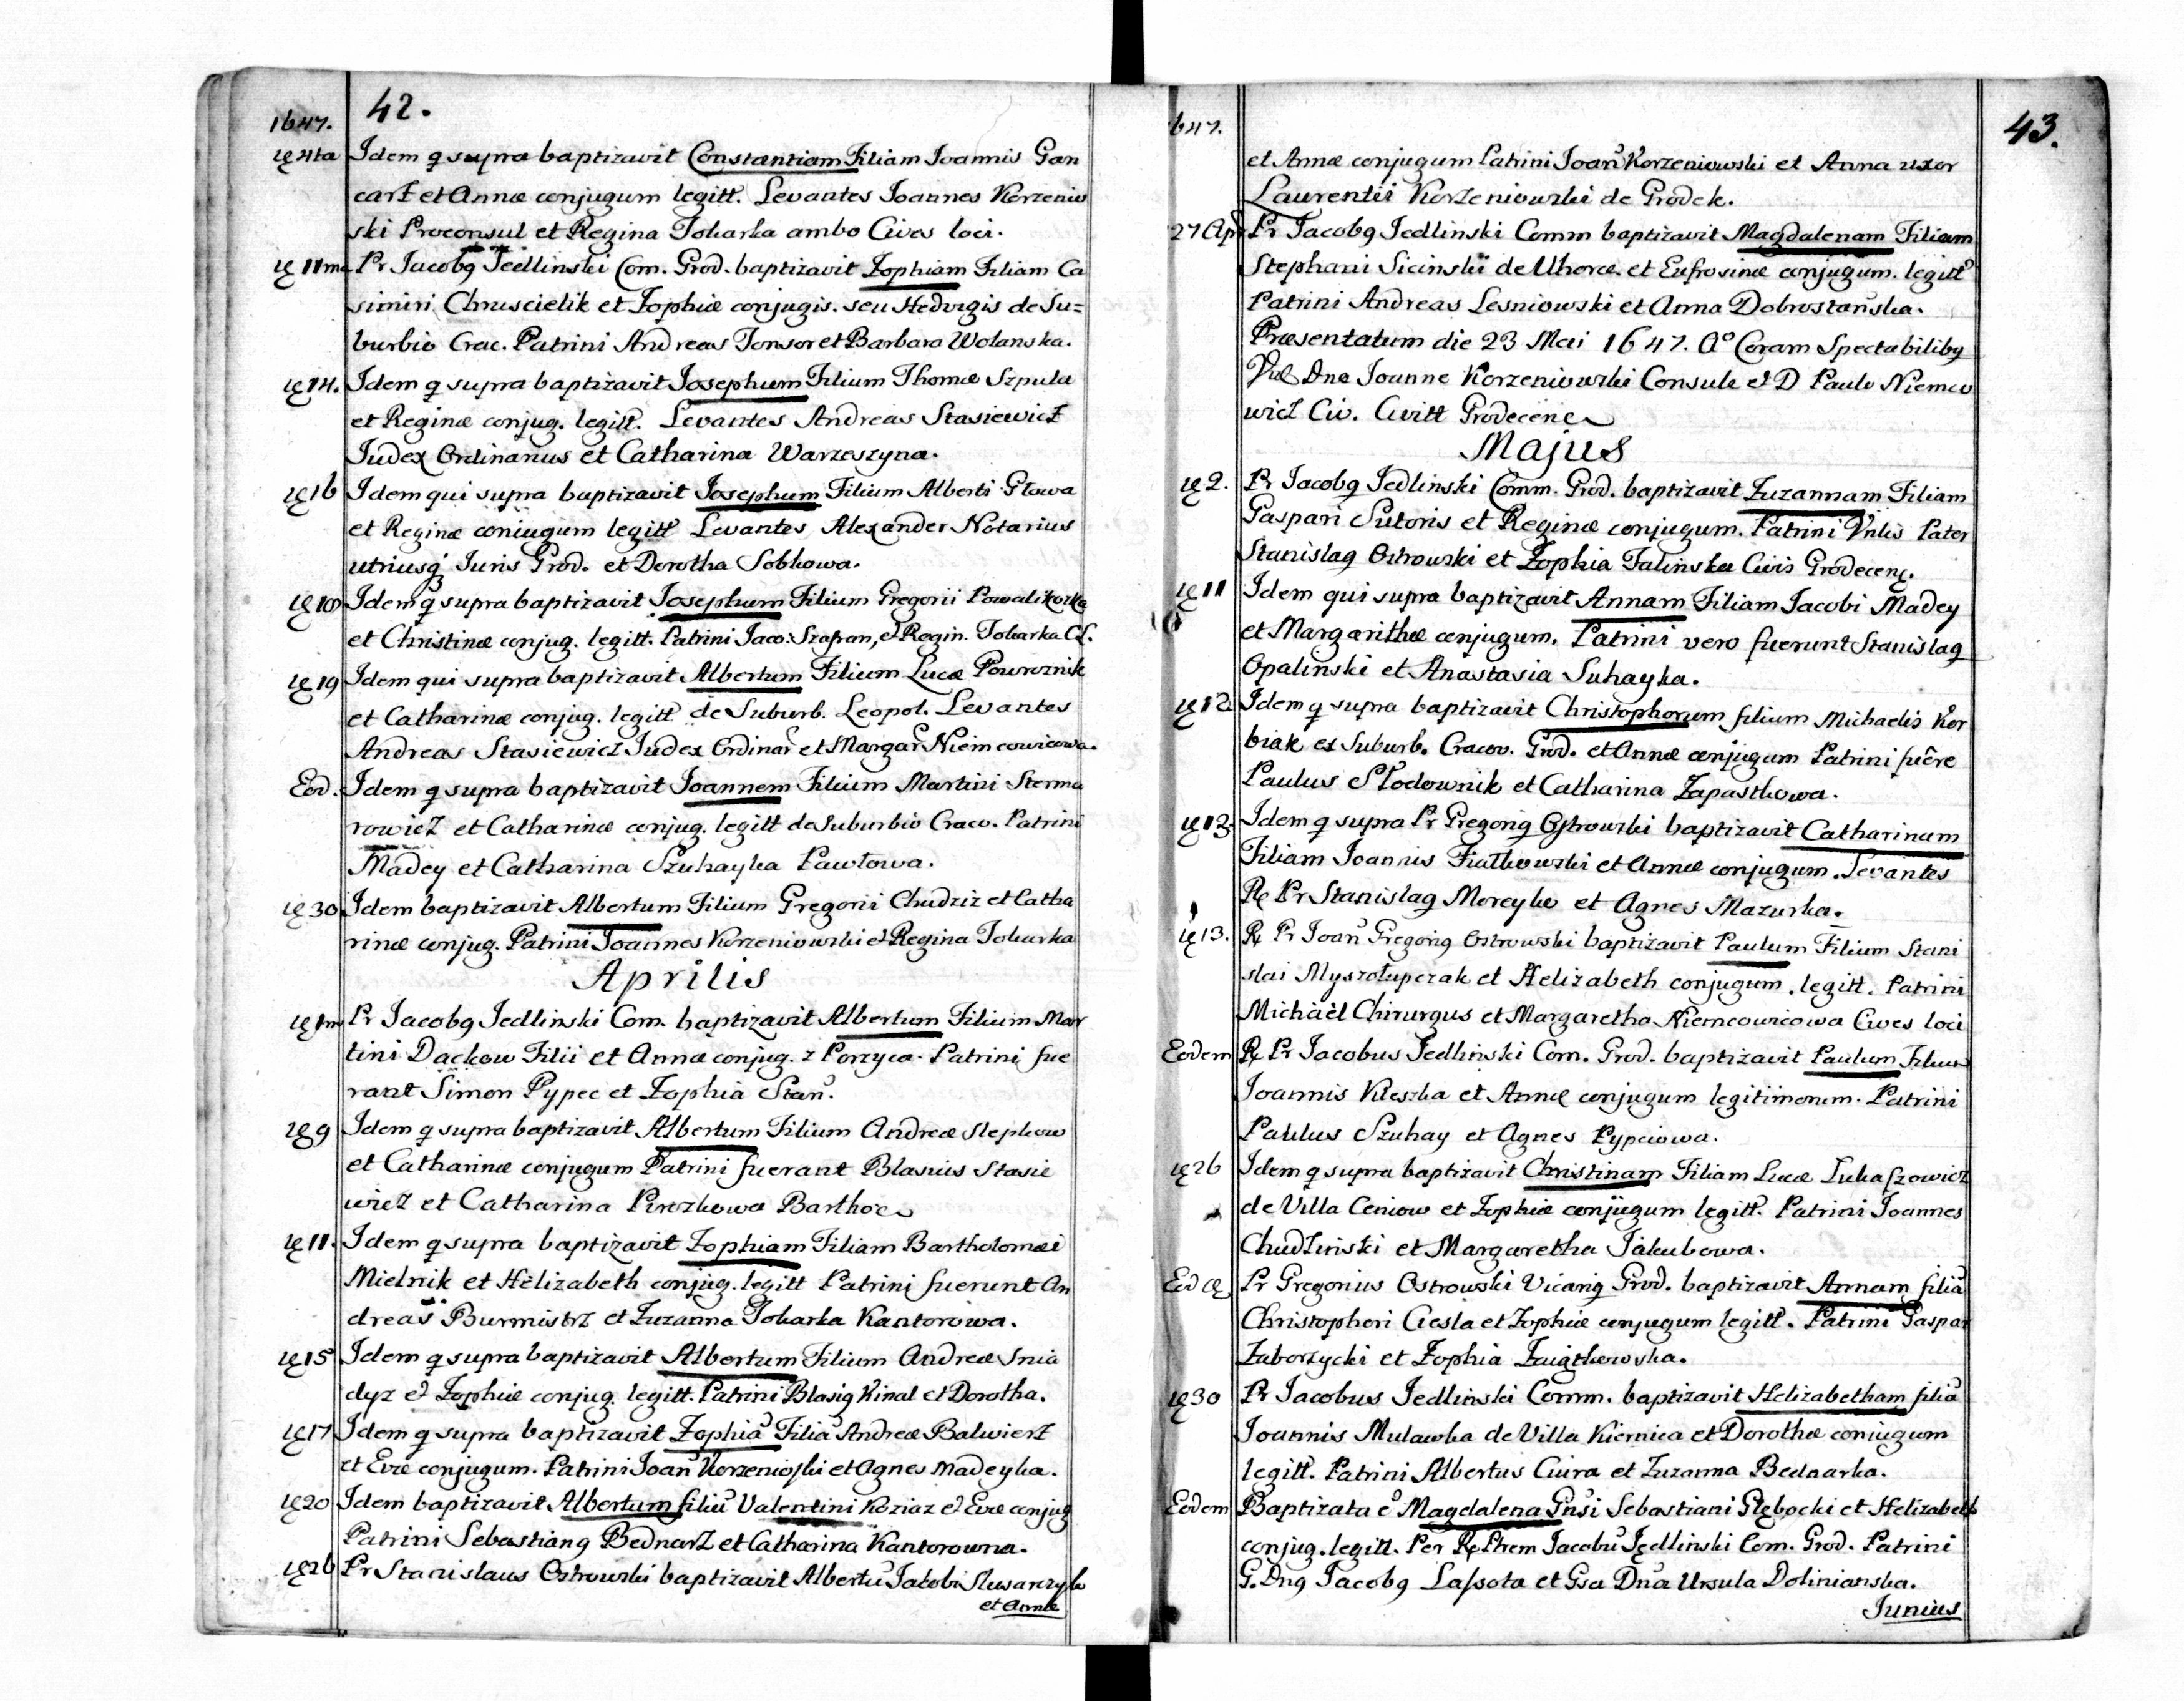 1647. 42.
4ta Idem q supra baptizavit Constantiam Filiam Joannis Gan
carz et Annæ conjugum legitt. Levantes Joannes Korzeniw
ski Proconsul et Regina Tokarka ambo Cives loci.
11ma Pr Jacobg Jedlinski Com. Grod. baptizavit Zophiam Filiam Ca
simiri Chruscielik et Zophiæ conjugis. seu Hedvigis de Su=
burbio Crac. Patrini Andreas Tonsor et Barbara Wolanska.
14. Idem q supra baptizavit Josephum Filium Thomæ Szpula
et Reginæ conjug. legitt. Levantes Andreas Stasiewicz
Judex Ordinarius et Catharina Warzeszyna.
16 Idem qui supra baptizavit Josephum Filium Alberti Głowa
et Reginæ coniugum legitt Levantes Alexander Notarius
utriusq Juris Grod. et Dorotha Sobkowa.
Idem q supra baptizavit Josephum Filium Gregorii
et Christinæ conjug. legitt. Patrini Jaco: Szafran, et Regin. Tokarka C.L.
19 Idem qui supra baptizavit Albertum Filium Lucæ Powroznik
et Catharinæ conjug. legitt de Suburb. Leopol. Levantes
Andreas Stasiewicz Judex Ordinar et Margar Niemcowicowa.
Eod. Idem q supra baptizavit Joannem Filium Martini Sterma
rowicz et Catharinæ conjug. legitt de Suburbio Crac. Patrini
Madey et Catharina Szuhayka Pawłowa.
30 Idem baptizavit Albertum Filium Gregorii Chudziz et Catha
rinæ conjug. Patrini Joannes Korzeniowski et Regina Tokarka
Aprilis
1m Pr Jacobg Jedlinski Com. baptizavit Albertum Filium Mar
tini Dackow Filii et Annæ conjug. z Porzyca. Patrini fue
rant Simon Pypec et Zophia Stan.
9 Idem q supra baptizavit Albertum Filium Andreæ Slepkow
et Catharinæ conjugum Patrini fuerant Blasius Stasie
wicz et Catharina Pirozkowa
11. Idem q supra baptizavit Zophiam Filiam Bartholomæi
Mielnik et Helizabeth conjug. legitt Patrini fuerunt An
dreas Burmistrz et Zuzanna Tokarka Kantorowa.
15 Idem q supra baptizavit Albertum Filium Andreæ Snia
dyz et Zophiæ conjug. legitt. Patrini Blasig Kinal et Dorotha.
17 Idem q supra baptizavit Zophiã Filiã Andreæ Balwierz
et Evæ conjugum. Patrini Joan Korzenioski et Agnes Madeyka.
20 Idem baptizavit Albertum filiu Valentini Koziaz et Evæ conjug
Patrini Sebastiang Bednarz et Catharina Kantorowna.
26 Pr Stanislaus Ostrowski baptizavit Albertu Jakobi Slusarczyk
et Annæ
1647. 43.
et Annæ conjugum Patrini Joan Korzeniowski et Anna uxor
Laurentii Korzeniowski de Grodek.
27 Apr Pr Jacobg Jedlinski Comm baptizavit Magdalenam Filiam
Stephani Sicinski de Uherce. et Eufrosinæ conjugum. legitt
Patrini Andreas Lesniowski et Anna Dobrostańska.
Præsentatum die 23 Mai 1647. Aº Coram Spectabilibg
Dno Joanne Korzeniowski Consule et D Paulo Niemco
wicz Civ. Civitt Grodecene
Majus
2. Pr Jacobg Jedlinski Comm. Grod. baptizavit Zuzannam Filiam
Gaspari Sutoris et Reginæ conjugum. Patrini Vnlis Pater
Stanislag Ostrowski et Zophia Falinska Civis Grodecenę.
11 Idem qui supra baptizavit Annam Filiam Jacobi Madey
et Margarithæ conjugum. Patrini vero fuerunt Stanislag
Opalinski et Anastasia Suhayka.
12 Idem q supra baptizavit Christophorum filium Michaelis Kor
biak ex Suburb. Cracov. Grod. et Annæ conjugum Patrini fuêre
Paulus Słodownik et Catharina Zapastkowa.
13 Idem q supra Pr Gregorig Ostrowski baptizavit Catharinam
Filiam Joannis Fiałkowski et Annæ conjugum. Levantes
R Pr Stanislag Moreyko et Agnes Mazurka.
13. R Pr Joan Gregorig Ostrowski baptizavit Paulum Filium Stani
slai Myszołupczak et Helizabeth conjugum. legitt. Patrini
Michaël Chirurgus et Margaretha Niemcowicowa Cives loci
Eodem R Pr Jacobus Jedlinski Com. Grod. baptizavit Paulum Filium
Joannis Kieszka et Annæ conjugum legitimorum. Patrini
Paulus Szuhay et Agnes Pypciowa.
26 Idem q supra baptizavit Christinam Filiam Lucæ Lukaszowicz
de Villa Ceniow et Zophiæ conjugum legitt. Patrini Joannes
Chudziński et Margaretha Jakubowa.
Eod Pr Gregorius Ostrowski Vicarig Grod. baptizavit Annam filiã
Christophori Ciesla et Zophiæ conjugum legitt. Patrini Gaspar
Zaborzycki et Zophia
30 Pr Jacobus Jedlinski Comm. baptizavit Helizabetham filiã
Joannis Mulawka de Villa Kiernica et Dorothæ coniugum
legitt. Patrini Albertus Ciura et Zuzanna Bednarka.
Eodem Baptizata e Magdalena Gnsi Sebastiani Głębocki et Helizabeth
conjug. legitt. Per R Ptrem Jacobu Jędlinski Com. Grod. Patrini
G. Dng Jacobg Lassota et Gsa Dna Ursula Dolinianska.
Junius